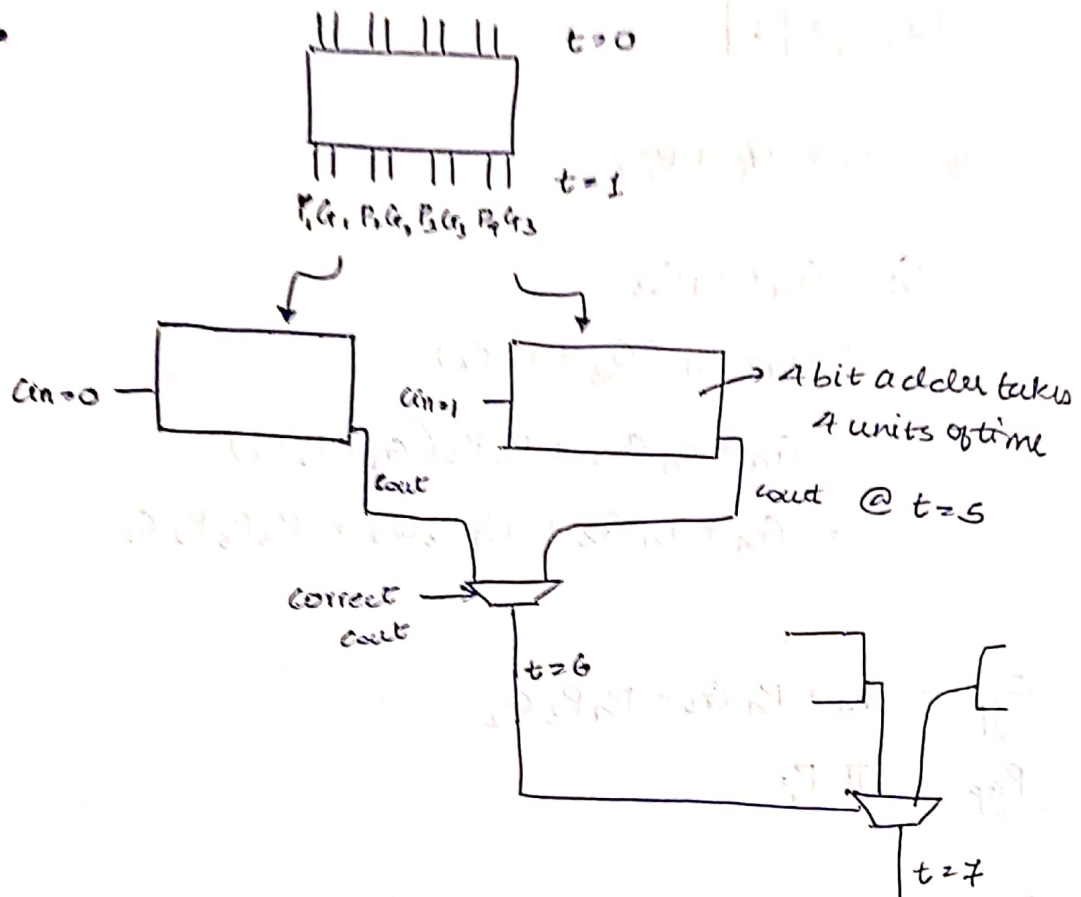 t=0
t=1
P₁G₁ P₂G₂ P₃G₃ P₄G₃
Cin=0
Cin=1
4 bit adder takes
4 units of time
Cout
Cout @ t=5
correct
cout
t=6
t=7